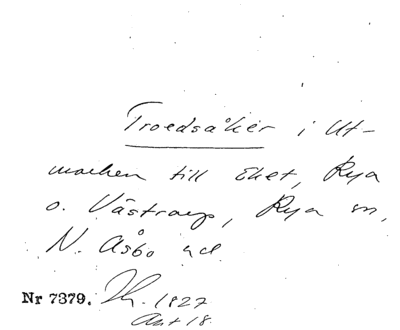 Troedsåker i Ut-
marken till Eket, Rya
o. Västraryp, Rya sn,
N. Åsbo hd.
Nr 7379. 1827
Akt 18.